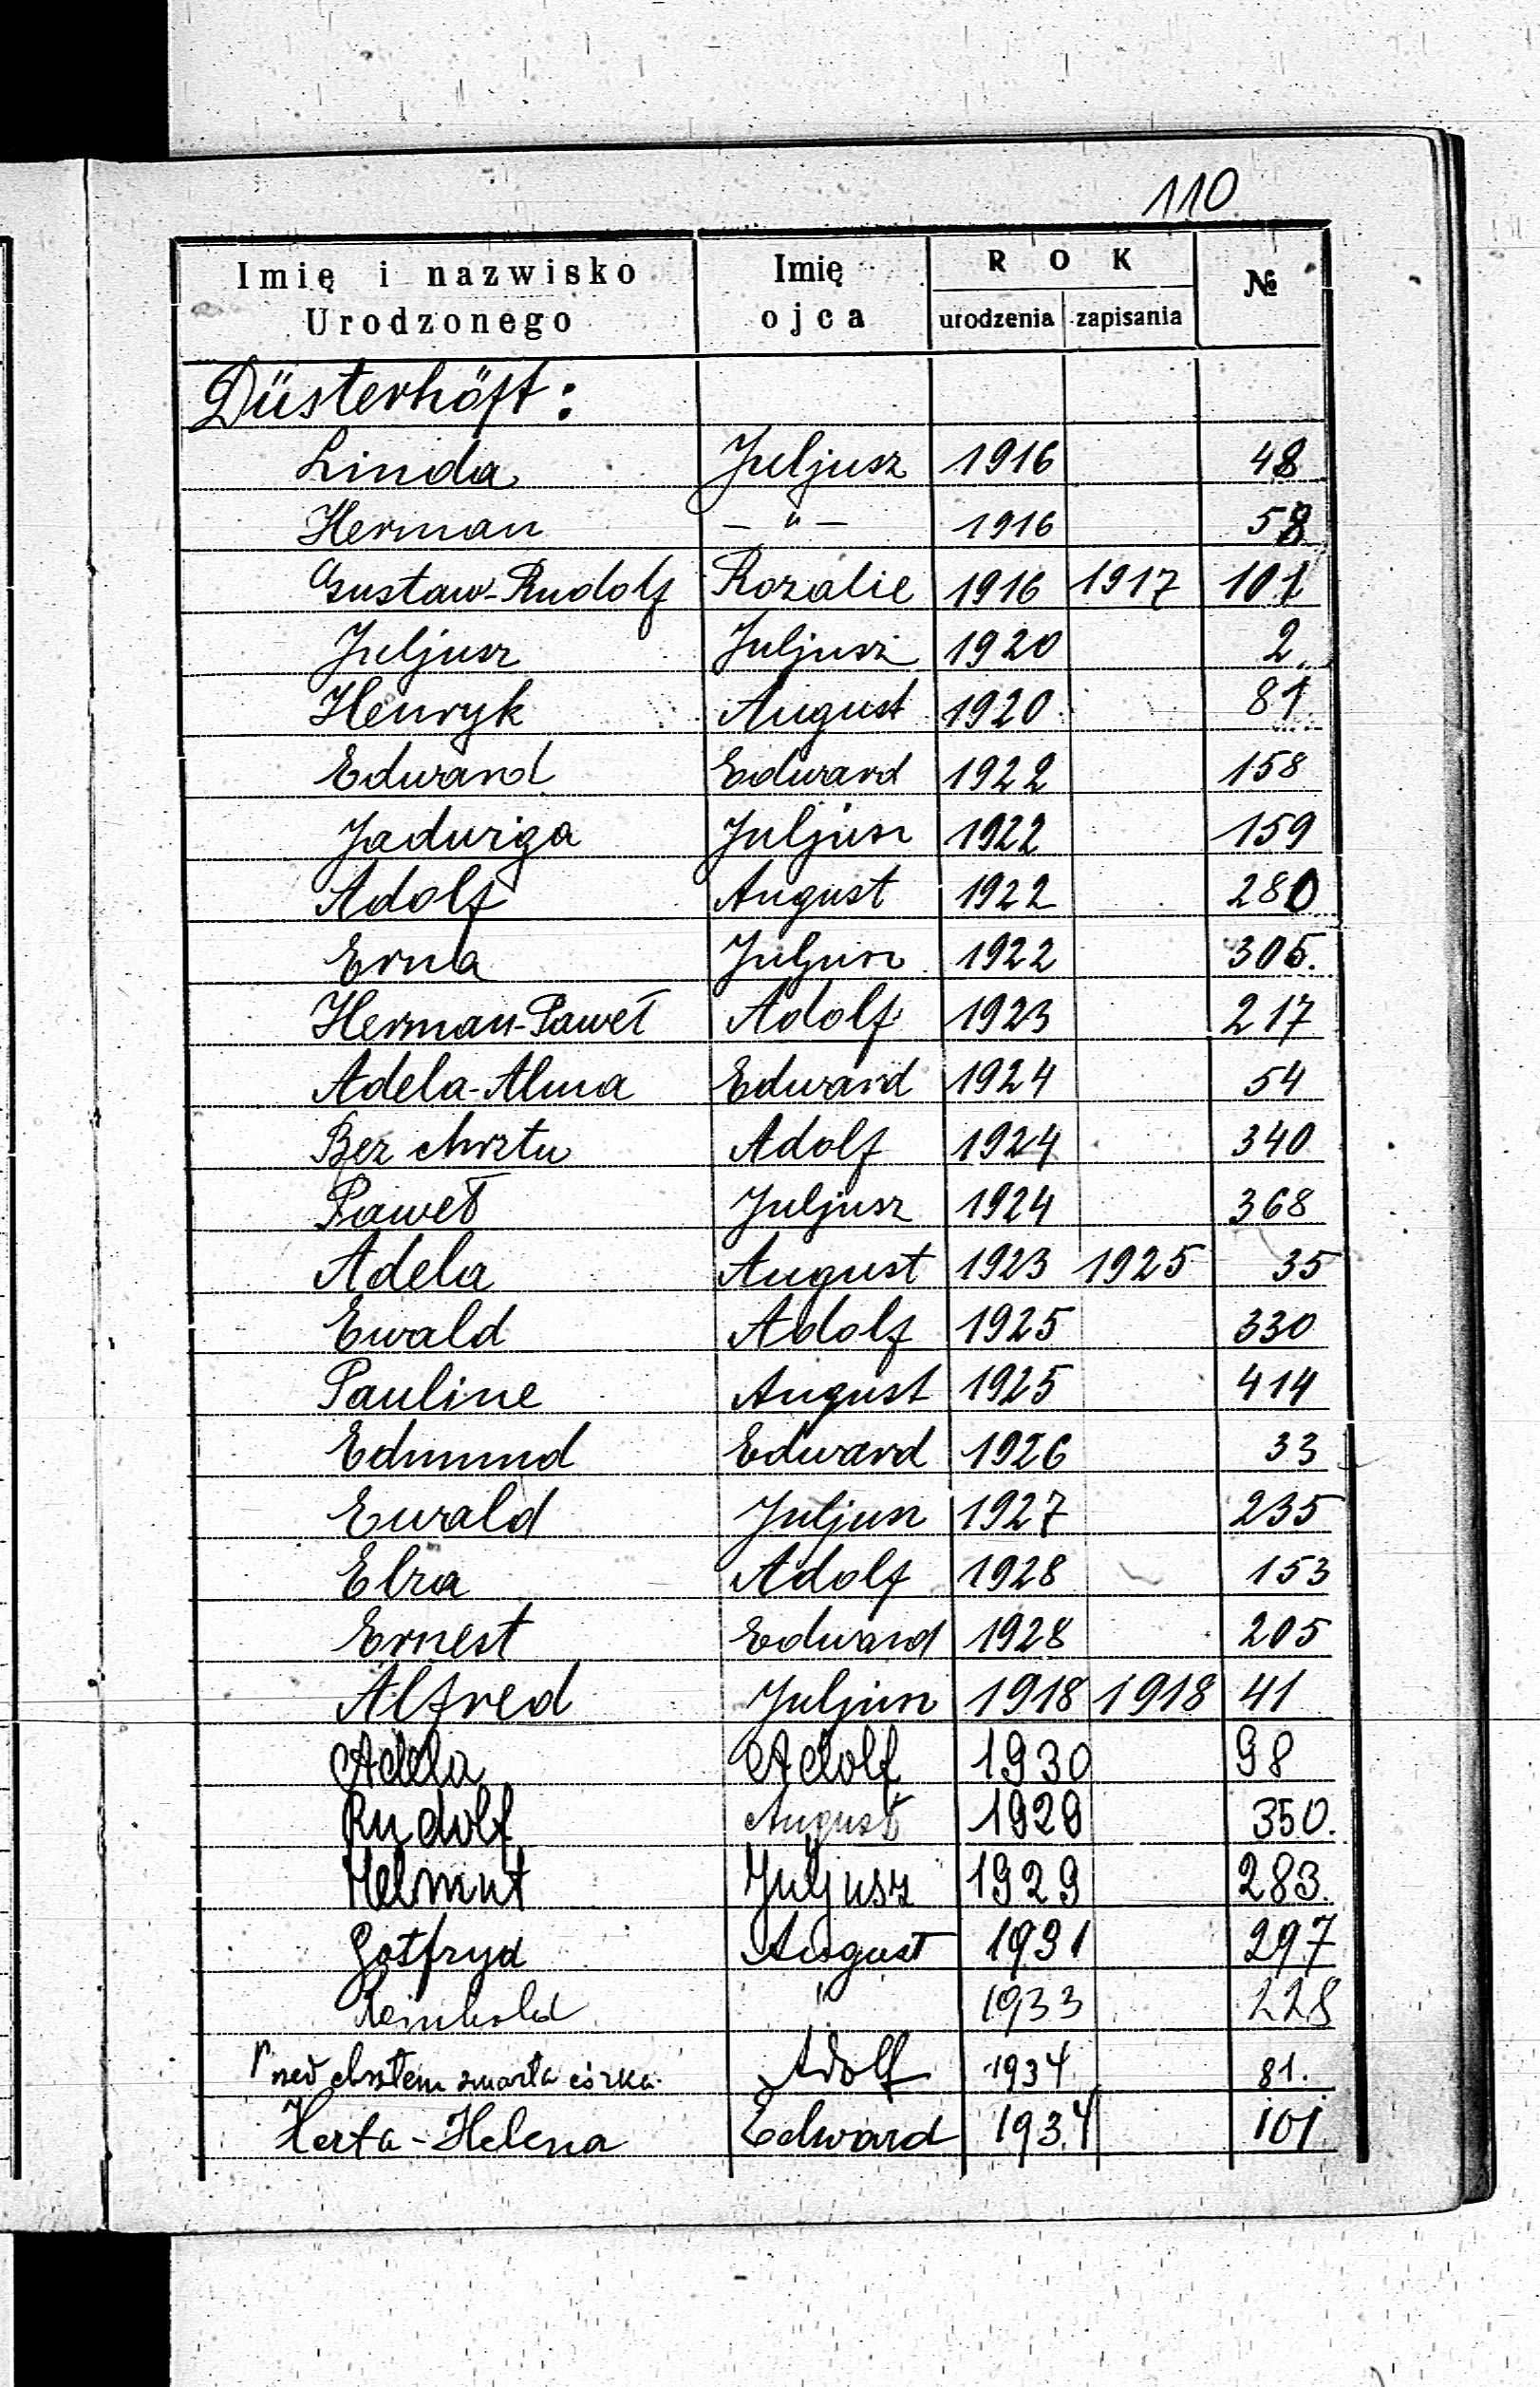 110
Imię i nazwisko Urodzonego | Imię ojca | ROK urodzenia | zapisania | №
Düsterhöft:
Linda Juljusz 1916 48
Herman – " – 1916 58
Gustaw-Rudolf Rozalie 1916 1917 101
Juljusz Juljusz 1920 2
Henryk August 1920 81
Edward Edward 1922 158
Jadwiga Juljusz 1922 159
Adolf August 1922 280
Erna Juljusz 1922 305.
Herman-Paweł Adolf 1923 217
Adela-Alma Edward 1924 54
Bez chrztu Adolf 1924 340
Paweł Juljusz 1924 368
Adela August 1923 1925 35
Ewald Adolf 1925 330
Pauline August 1925 414
Edmund Edward 1926 33
Ewald Juljusz 1927 235
Elza Adolf 1928 153
Ernest Edward 1928 205
Alfred Juljusz 1918 1918 41
Adela Adolf 1930 98
Rudolf August 1929 350.
Helmut Juljusz 1929 283.
Gotfryd August 1931 297
Reinhold " 1933 228
Przed chrztem zmarła córka Adolf 1934 81.
Herta-Helena Edward 1934 101